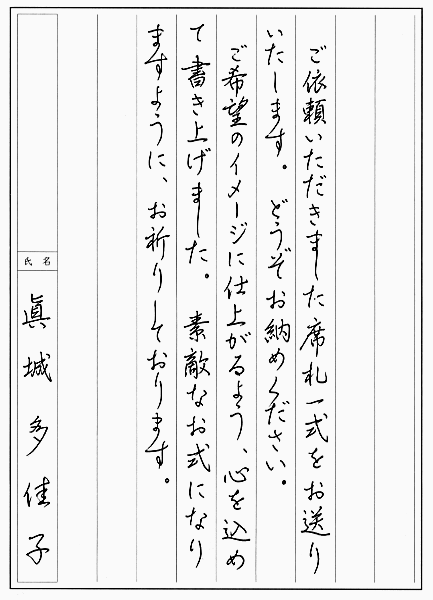 ご依頼いただきました席札一式をお送り
いたします。どうぞお納めください。
ご希望のイメージに仕上がるよう、心を込め
て書き上げました。素敵なお式になり
ますように、お祈りしております。
氏名
眞城多佳子